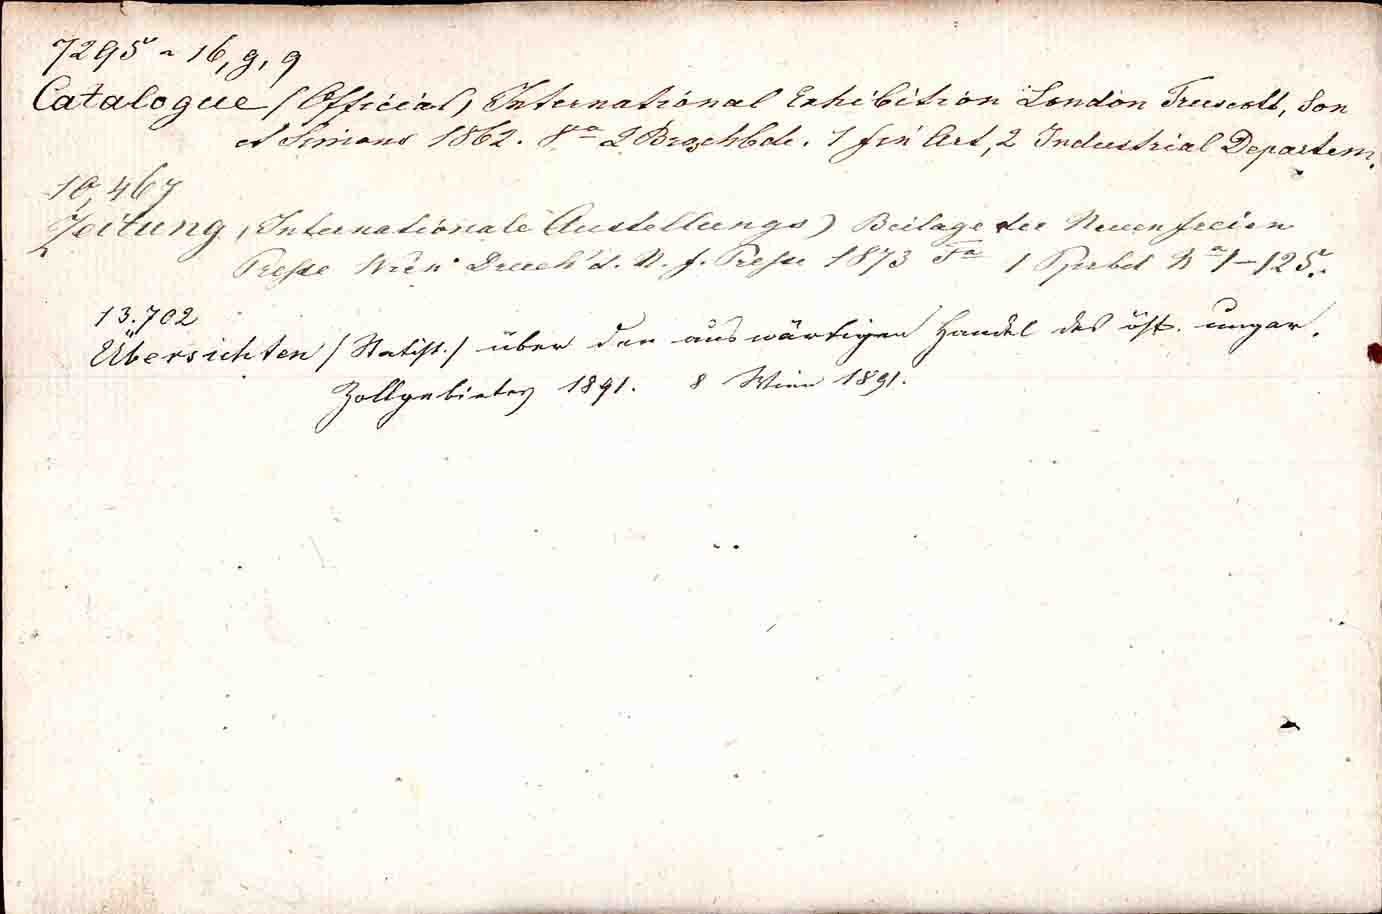 7295 ~ 16, g, g
Catalogue (Official) International Exhibition London Truscott, Son
et Simons 1862. 8° 2 Broschbde. 1 fin Art, 2 Industrial Departem.
10,467
Zeitung, Internationale Austellungs) Beilage der Neuen freien
Presse Wien Druck d. N. f. Presse 1873 F° 1 Ppbd N° 1-125.
13.702
Übersichten /Statist./ über den auswärtigen Handel des öst. ungar.
Zollgebietes 1891. 8 Wien 1891.